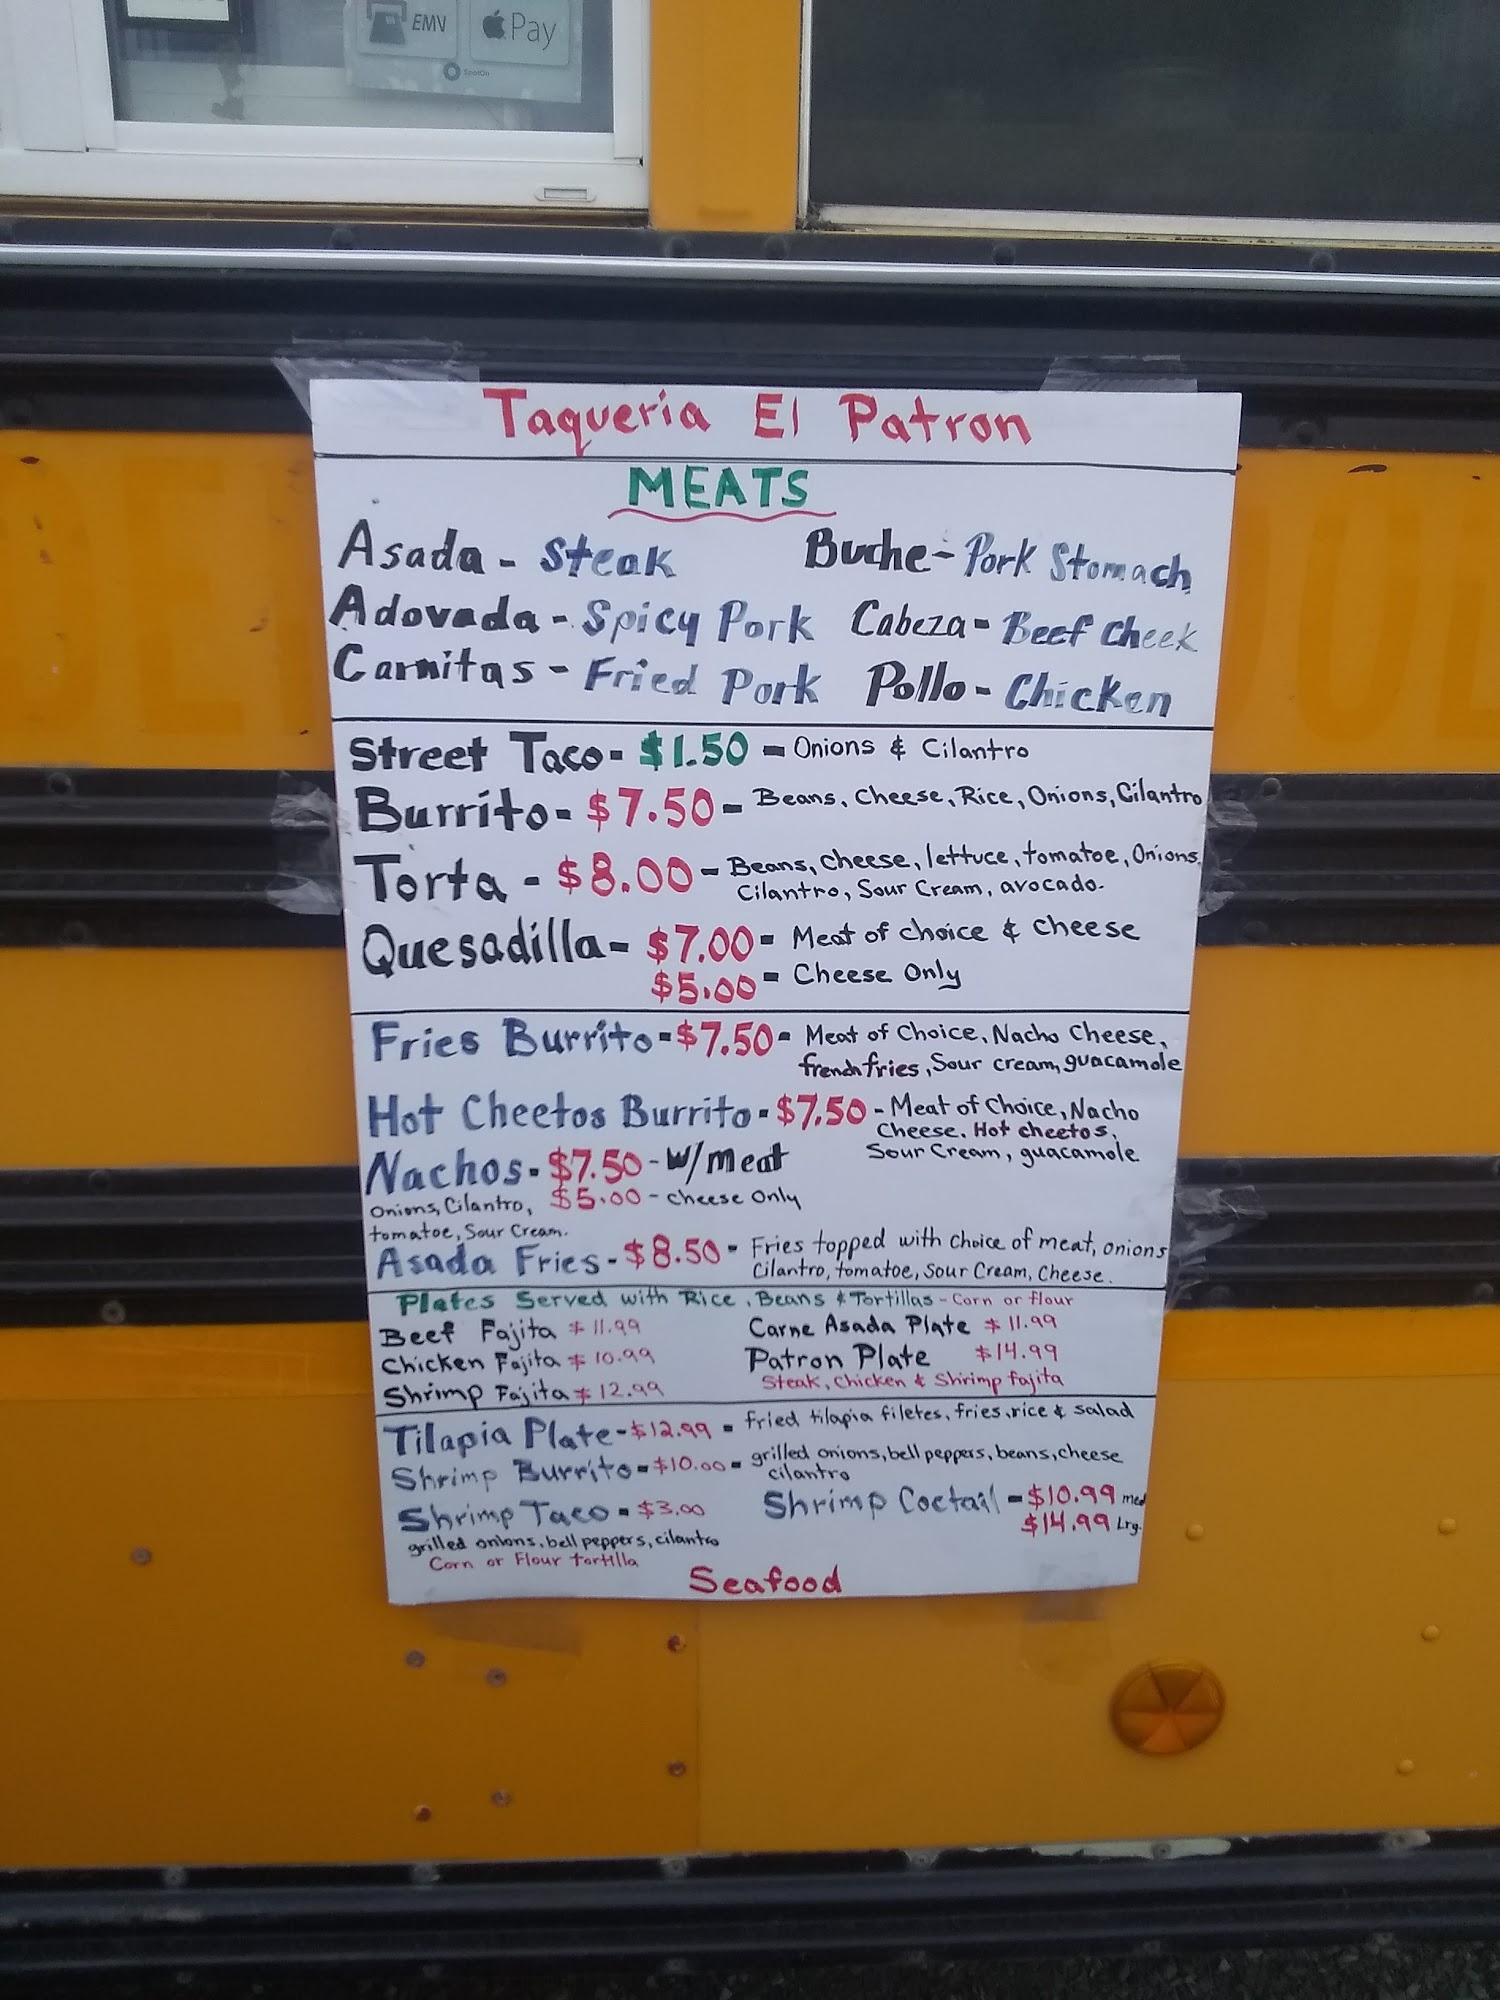 EMV
Pay
SpotOn
Taqueria El Patron
MEATS
Asada - Steak
Buche - Pork Stomach
Adovada - Spicy Pork
Cabeza - Beef Cheek
Carnitas - Fried Pork
Pollo - Chicken
Street Taco - $1.50 - Onions & Cilantro
Burrito - $7.50 - Beans, Cheese, Rice, Onions, Cilantro
Torta - $8.00 - Beans, cheese, lettuce, tomatoe, Onions
Cilantro, Sour Cream, avocado.
Quesadilla - $7.00 - Meat of choice & cheese
$5.00 - Cheese Only
Fries Burrito - $7.50 - Meat of Choice, Nacho Cheese,
french fries, Sour cream, guacamole
Hot Cheetos Burrito - $7.50 - Meat of Choice, Nacho
Cheese, Hot cheetos,
Sour Cream, guacamole
Nachos - $7.50 - w/meat
Onions, Cilantro, $5.00 - cheese Only
tomatoe, Sour Cream.
Asada Fries - $8.50 - Fries topped with choice of meat, onions
Cilantro, tomatoe, Sour Cream, Cheese.
Plates Served with Rice, Beans & Tortillas - Corn or flour
Beef Fajita $11.99
Carne Asada Plate $11.99
Chicken Fajita $10.99
Patron Plate $14.99
Steak, Chicken & Shrimp fajita
Shrimp Fajita $12.99
Tilapia Plate - $12.99 - fried tilapia filetes, fries, rice & salad
Shrimp Burrito - $10.00 - grilled onions, bell peppers, beans, cheese
cilantro
Shrimp Taco - $3.00
grilled onions, bell peppers, cilantro
Corn or Flour tortilla
Shrimp Coctail - $10.99 med
$14.99 Lrg.
Seafood